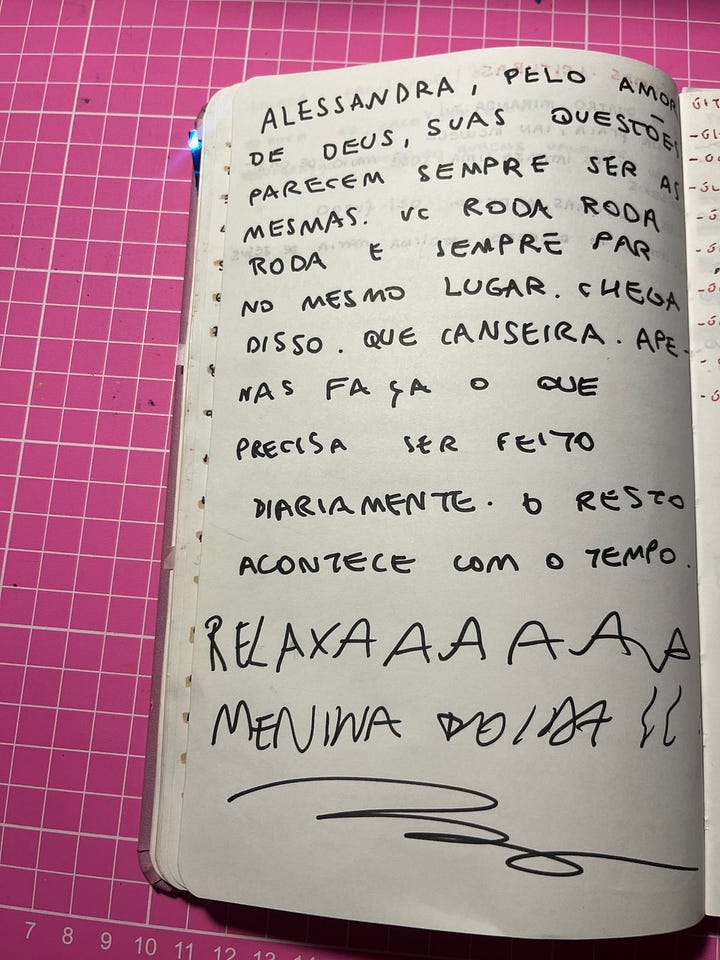 ALESSANDRA, PELO AMOR
DE DEUS, SUAS QUESTÕES
PARECEM SEMPRE SER AS
MESMAS. VC RODA RODA
RODA E SEMPRE PAR
NO MESMO LUGAR. CHEGA
DISSO. QUE CANSEIRA. APE-
NAS FAÇA O QUE
PRECISA SER FEITO
DIARIAMENTE. O RESTO
ACONTECE COM O TEMPO.
RELAXAAAAAA
MENINA DOIDA !!
7 8 9 10 11 12 13